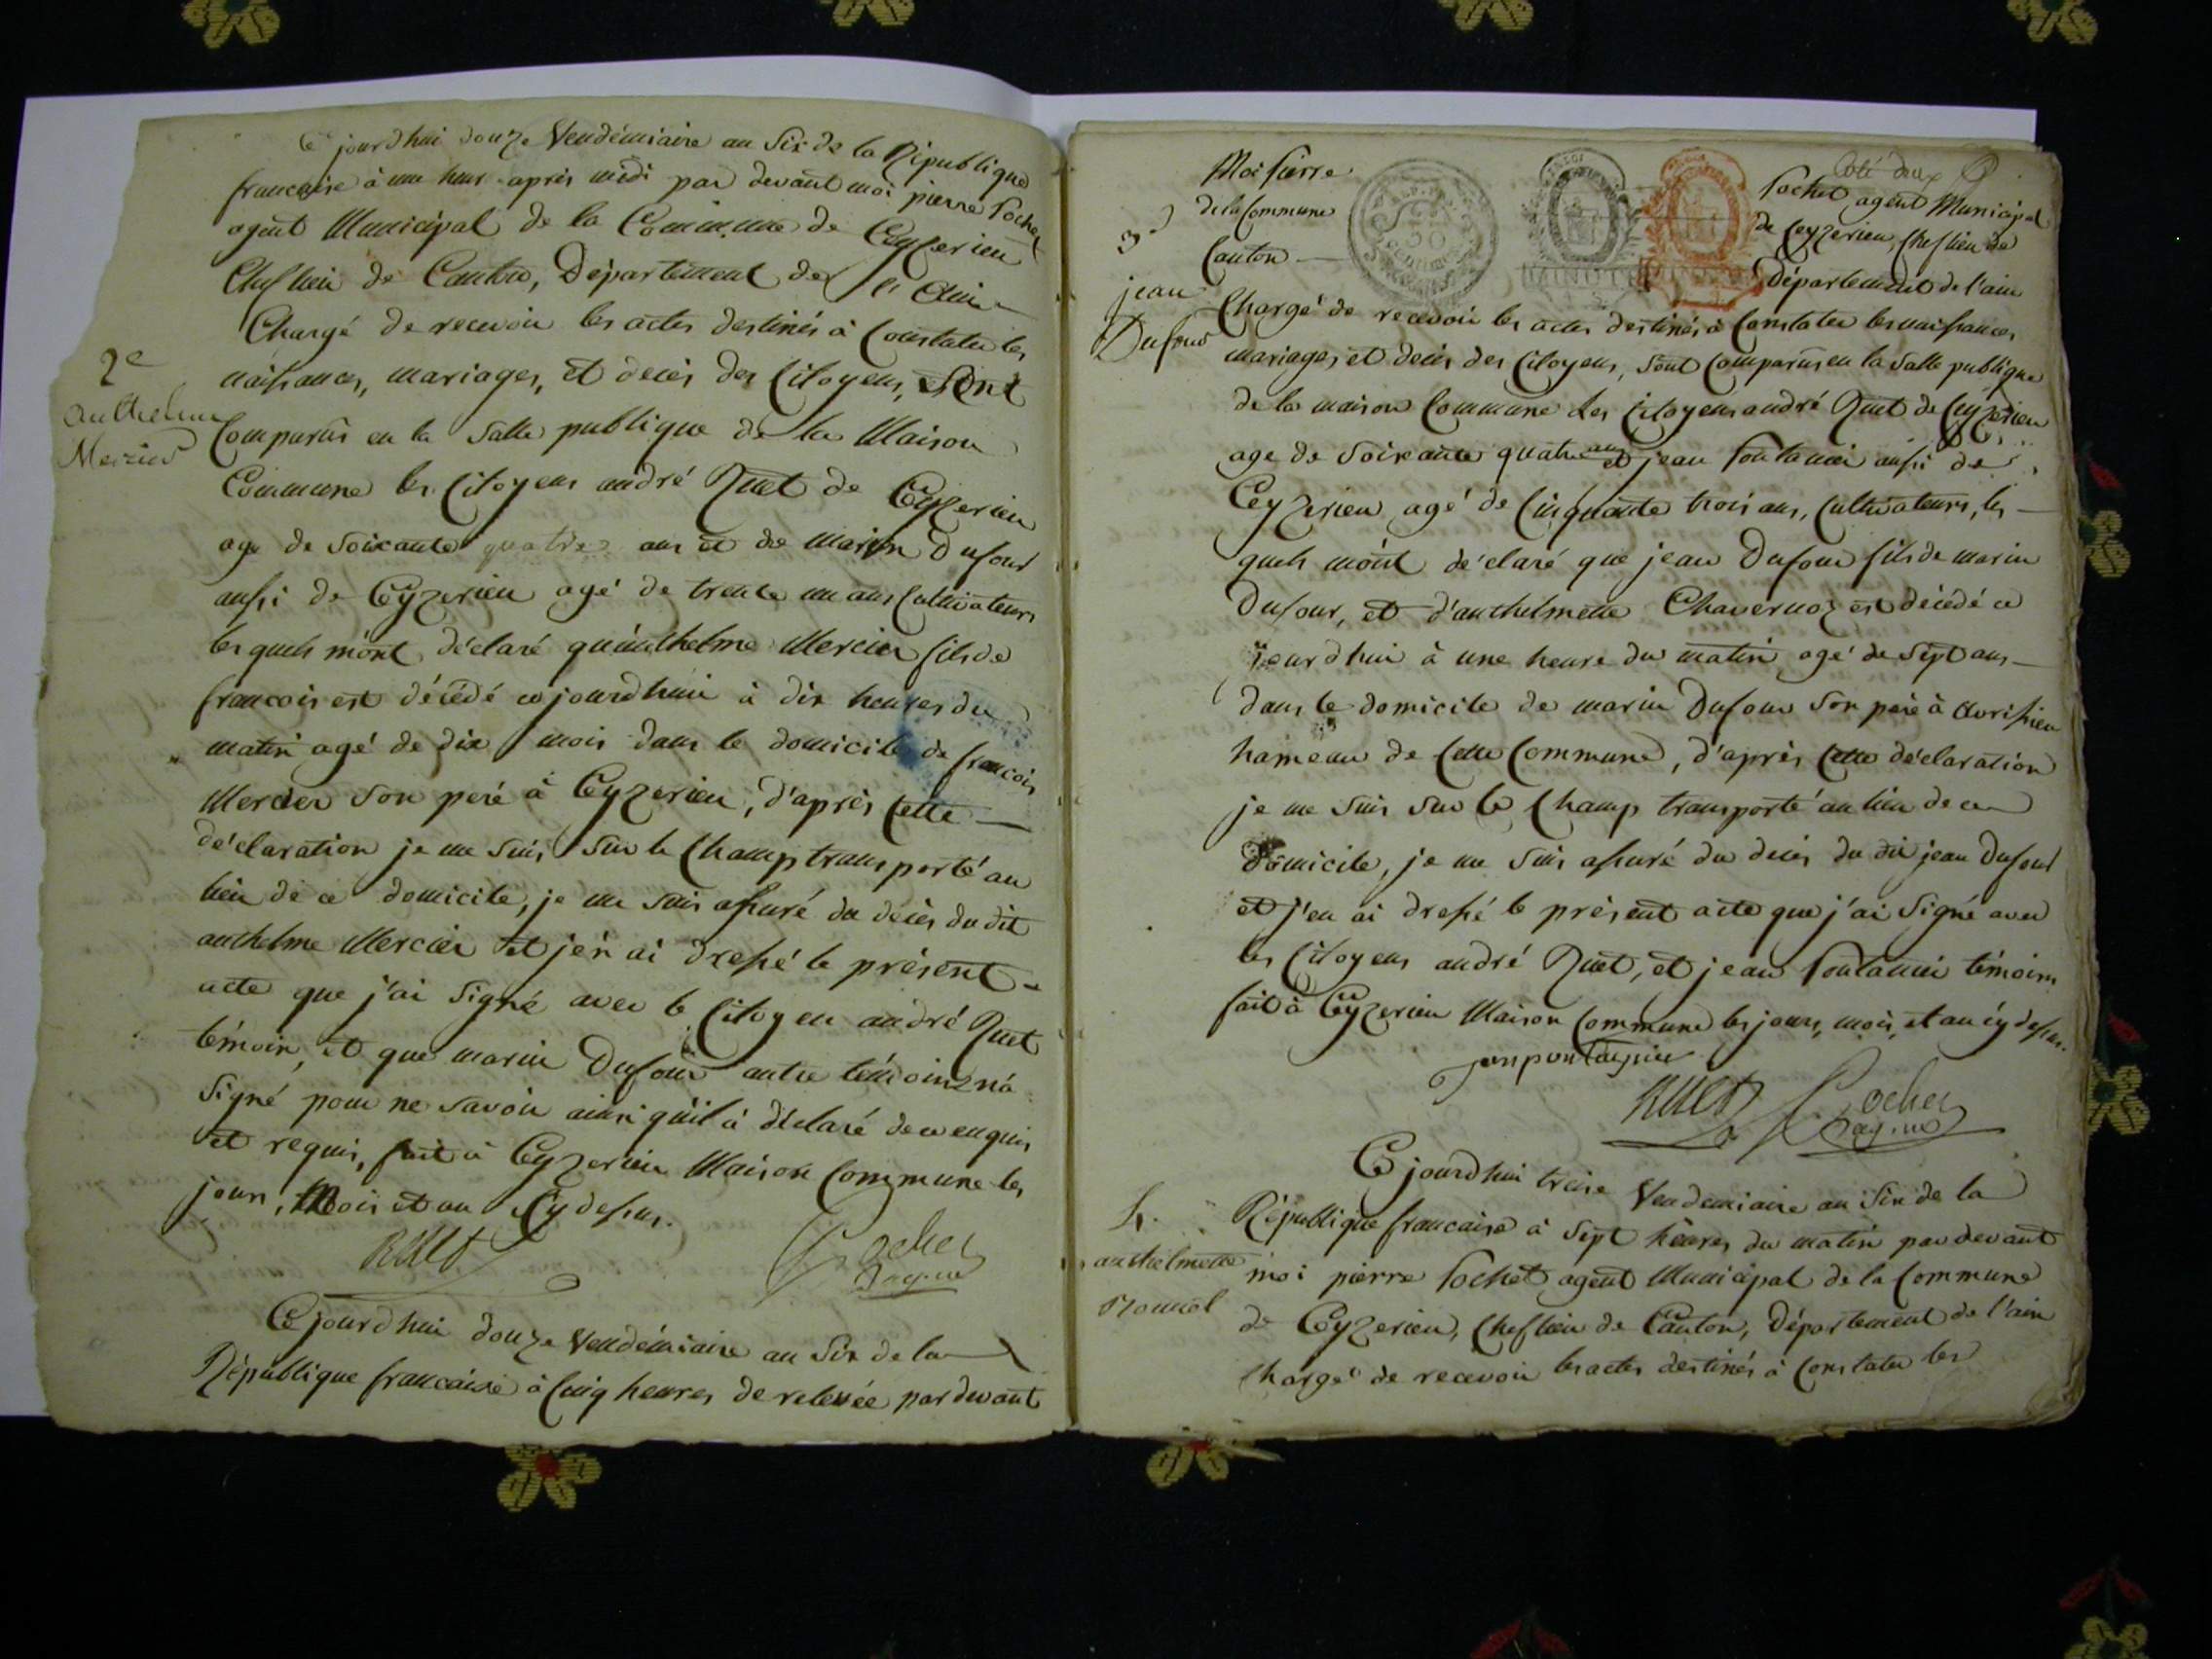 Ce jourdhui douze Vendémiaire an Six de la République
francaise à une heur après midi par devant moi pierre Pochet
agent Municipal de la Commune de Ceyzerieu
Chef lieu de Canton, Département de l'Ain
Chargé de recevoir les actes destinés à Constater les
naissances, mariages, et décès des Citoyens, Sont
2e
anthelme
Mercier
Comparus en la Salle publique de la Maison
Commune les Citoyens andré Ruet de Ceyzerieu
age de Soixante quatre ans et de marin Dufour
aussi de Ceyzerieu agé de trente un ans Cultivateurs
les quels mont déclaré qu'anthelme Mercier fils de
francois est décédé cejourdhui à dix heures du
matin agé de dix mois dans le domicile de francois
Mercier Son peré à Ceyzerieu, d'après Cette
déclaration je me Suis Sur le Champ transporté au
lieu de ce domicile, je me suis assuré du decès du dit
anthelme Mercier et j'en ai dressé le présent
acte que j'ai Signé avec le Citoyen andré Ruet
témoin, et que marin Dufour autre témoin n'a
Signé pour ne Savoir ainsi qu'il à déclaré de ce enquis
et requis, fait à Ceyzerieu Maison Commune les
jour, Mois et an Cy dessus.
Ruet Pochet
Cejourdhui douze Vendémiaire an Six de la
République francaise à Cinq heures de relevée par devant
Coté deux
Moi Pierre Pochet agent Municipal
de la Commune de Ceyzerieu Chef lieu de
Canton Département de l'ain
3e
jean
Dufour
Chargé de recevoir les actes destinés à Constater les naissances,
mariages, et decès des Citoyens, Sont Comparus en la Salle publique
de la maison Commune Les Citoyens andré Ruet de Ceyzerieu
age de Soixante quatre ans et jean Fontanier aussi de
Ceyzerieu agé de Cinquante trois ans, Cultivateurs, les
quels mont déclaré que jean Dufour fils de marin
Dufour, et d'anthelmette Chavernoz est décédé ce
jourdhui à une heure du matin agé de Sept ans
dans le domicile de marin Dufour Son peré à avrissieu
hameau de Cette Commune, d'après Cette déclaration
je me Suis Sur le Champ transporté au lieu de ce
domicile, je me Suis assuré du decès du dit jean Dufour
et j'en ai dressé le présent acte que j'ai Signé avec
les Citoyens andré Ruet, et jean Fontanier témoins
fait à Ceyzerieu Maison Commune les jour, mois, et an cy dessus.
Ruet Pochet
4.
anthelmette
Cejourdhui treize Vendemiaire an Six de la
République francaise à Sept heures du matin par devant
moi pierre Pochet agent Municipal de la Commune
de Ceyzerieu, Chef lieu de Canton, Département de l'ain
Chargé de recevoir les actes destinés à Constater les